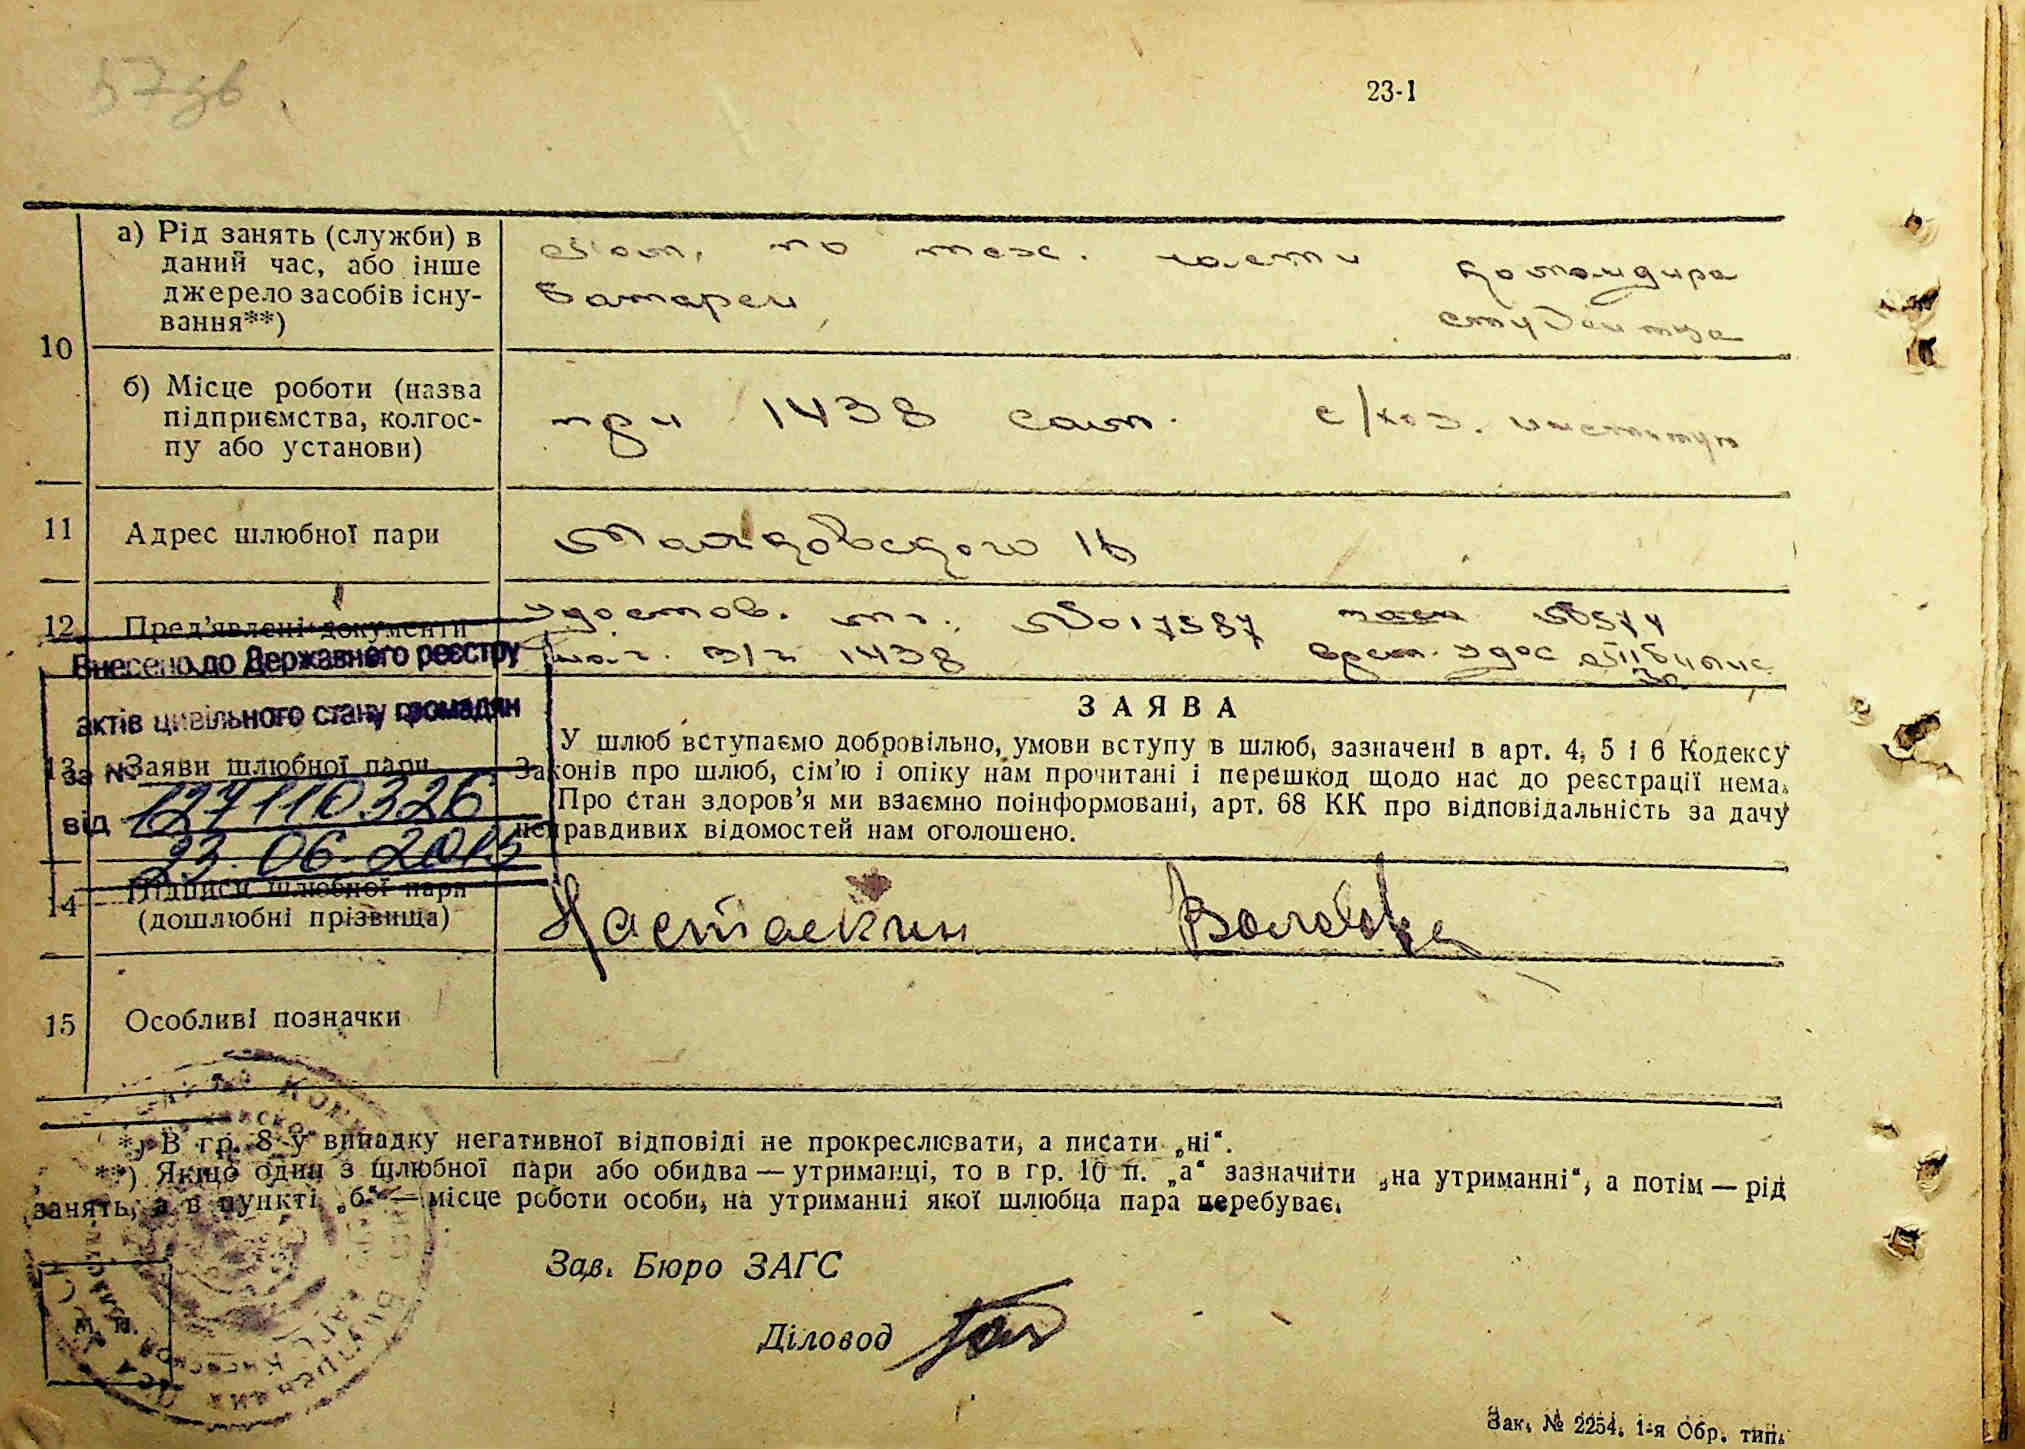 57 зв
23-1
10
а) Рід занять (служби) в
даний час, або інше
джерело засобів існу-
вання**)
по тех. части командира
батареи
студентка
б) Місце роботи (назва
підприємства, колгос-
пу або установи)
при 1438 сап. с/хоз. институт
11 Адрес шлюбної пари
Маяковского 16
12 Пред’явлені документи
удостов. №017587
нач. п/п 1438 врем. удос
Внесено до Державного реєстру
актів цивільного стану громадян
за № 127110326
від 23.06.2015
13 Заяви шлюбної пари
ЗАЯВА
У шлюб вступаємо добровільно, умови вступу в шлюб, зазначені в арт. 4, 5 і 6 Кодексу
Законів про шлюб, сім’ю і опіку нам прочитані і перешкод щодо нас до реєстрації нема.
Про стан здоров’я ми взаємно поінформовані, арт. 68 КК про відповідальність за дачу
неправдивих відомостей нам оголошено.
14 Підписи шлюбної пари
(дошлюбні прізвища)
Настаскин
15 Особливі позначки
*) В гр. 8 у випадку негативної відповіді не прокреслювати, а писати „ні“.
**) Якщо один з шлюбної пари або обидва — утриманці, то в гр. 10 п. „а“ зазначити „на утриманні“, а потім — рід
занять, а в пункті „б“ — місце роботи особи, на утриманні якої шлюбна пара перебуває.
Зав. Бюро ЗАГС
Діловод
М. П.
Зак. № 2254. 1-я Обр. тип.